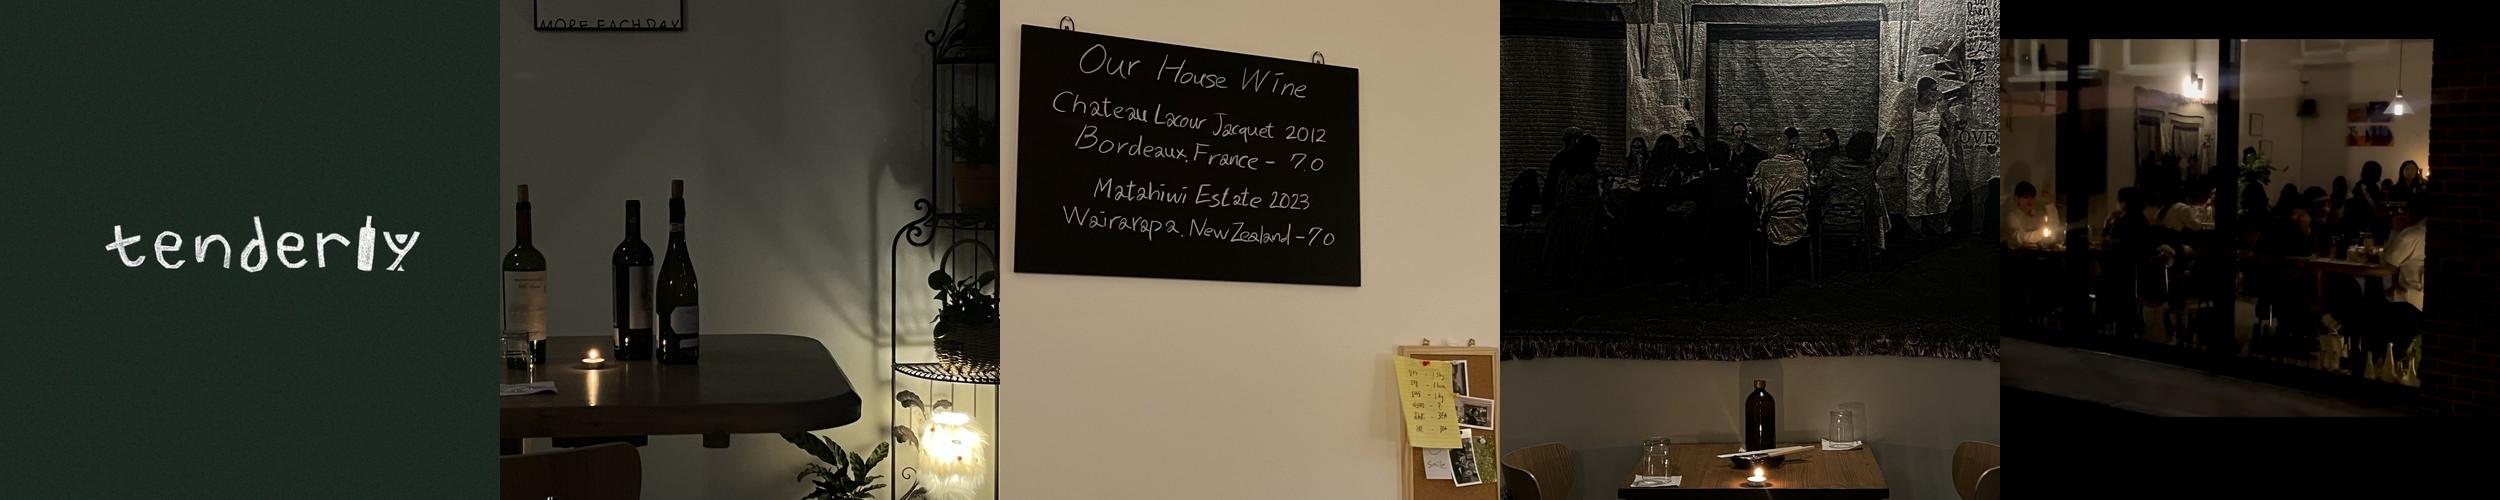 tenderly
MORE EACH DAY
Our House Wine
Chateau Lacour Jacquet 2012
Bordeaux, France - 7.0
Matahiwi Estate 2023
Wairarapa, New Zealand - 7.0
smile